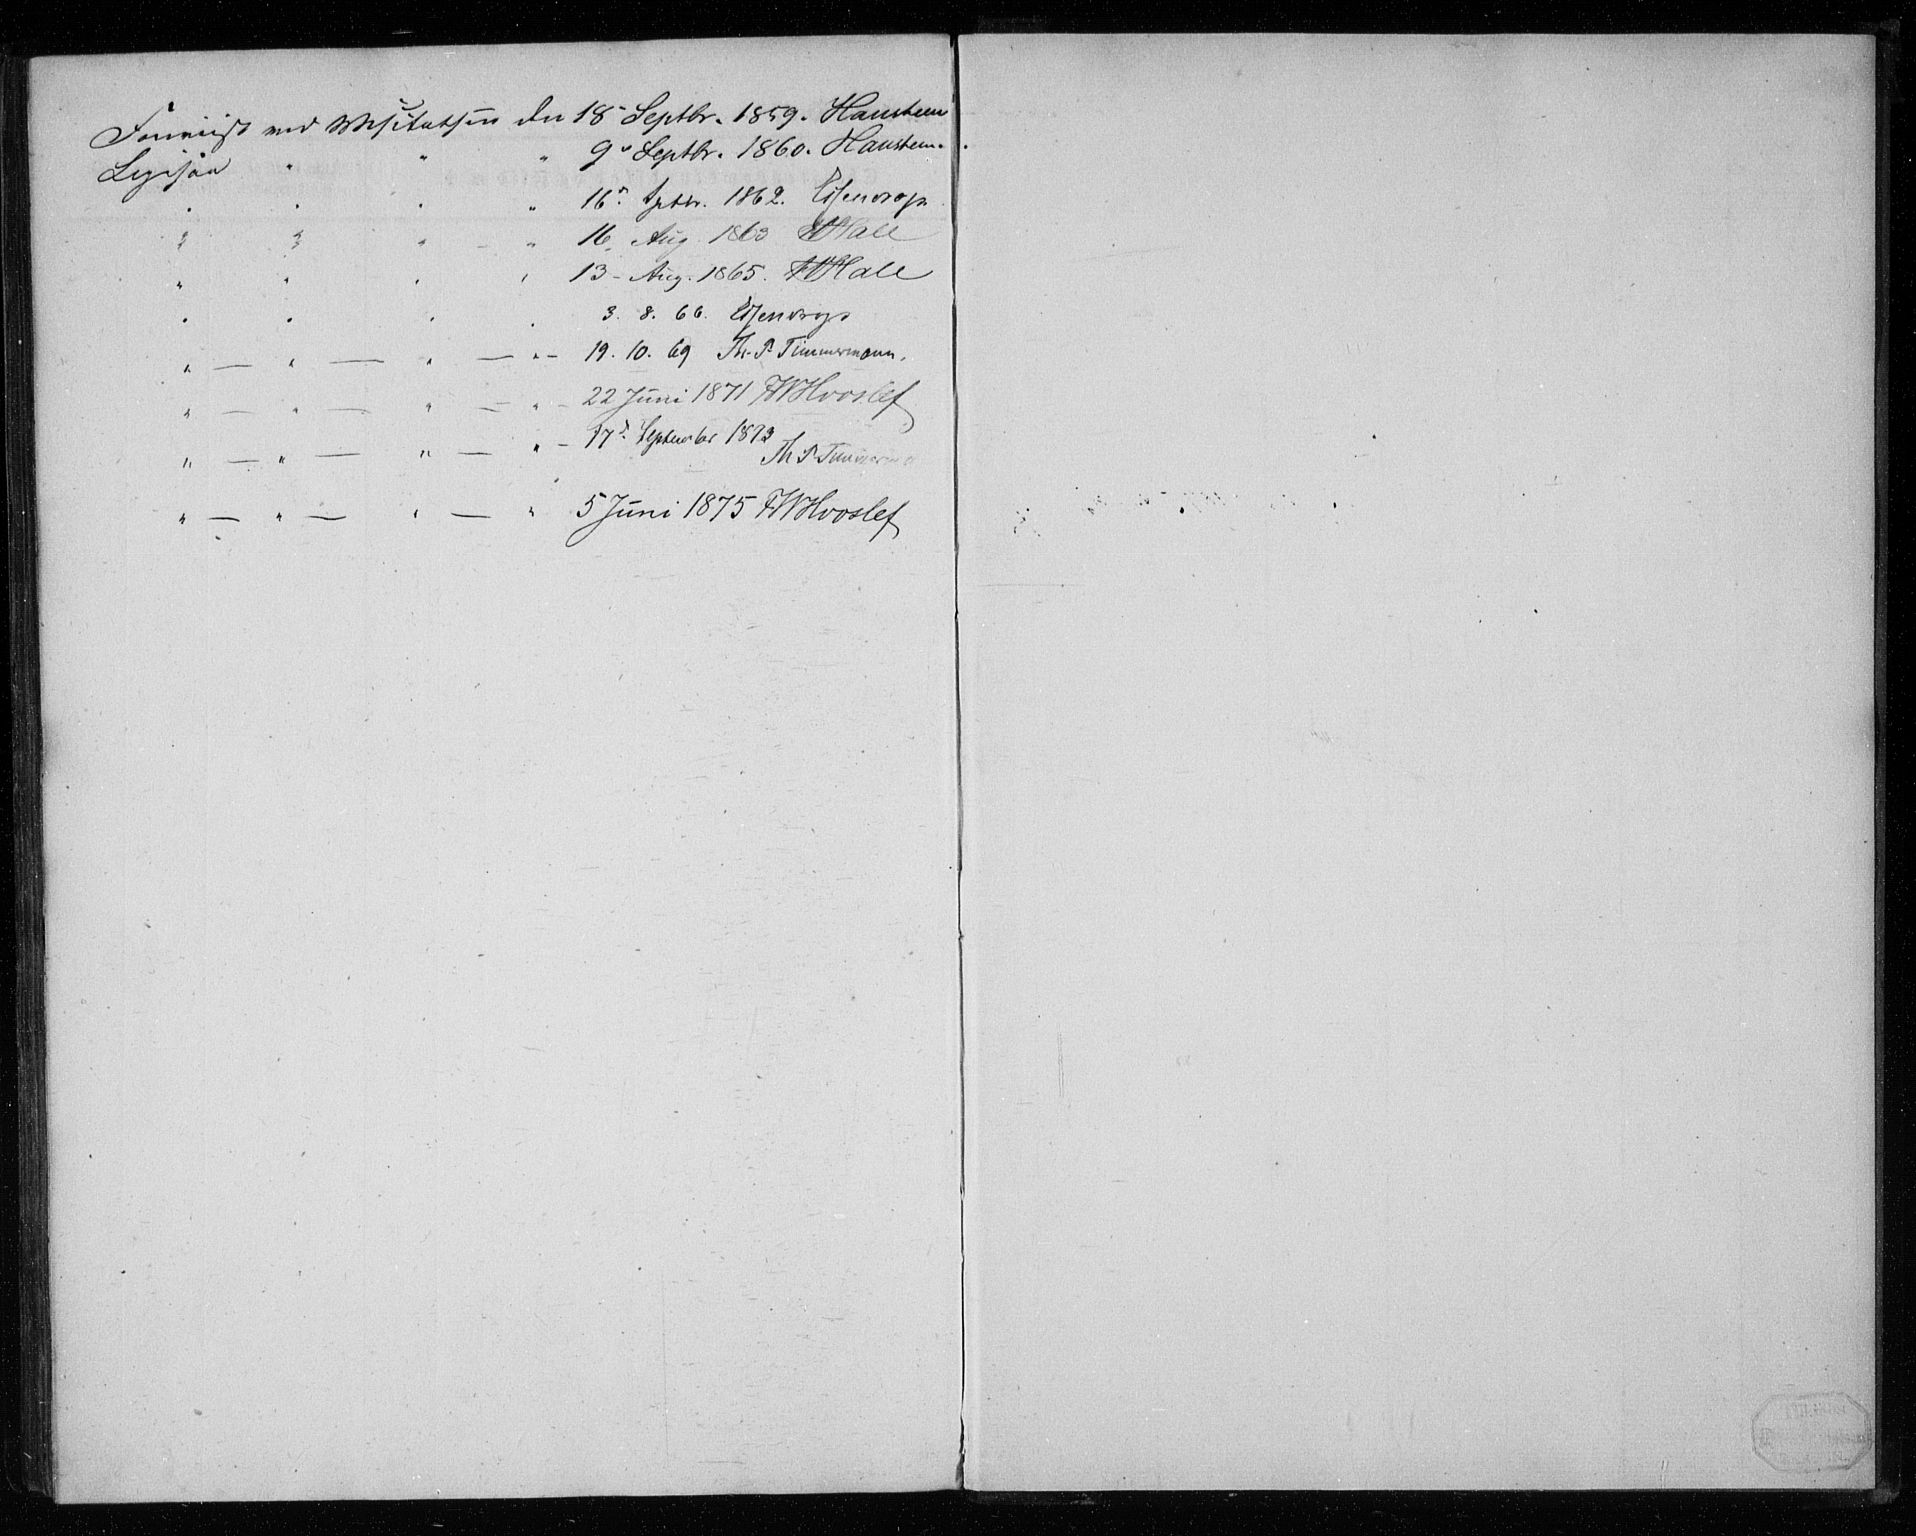 Foreviist ved Visitatsen den 18 Septbr. 1859. Hansteen
Ligesaa " " " 9 Septbr. 1860. Hansteen.
" " " " 16 Septbr. 1862.
" " " - " 16. Aug. 1863 Hall
" " " " 13 - Aug. 1865. Hall
" " " " 3. 8. 66.
" — " — " — " — 19. 10. 69 Th. P. Timmermann.
" — " — " — " — 22 Juni 1871 FWHvoslef
" — " — " — " — 17 September 1873
Th P. Timmerma
" — " — " — " 5 Juni 1875 FWHvoslef